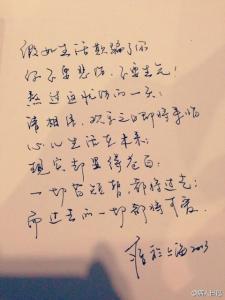 假如生活欺骗了你
你不要悲伤,不要生气!
熬过这忧伤的一天:
请相信,欢乐之日即将来临
心儿生活在未来;
现实却显得苍白:
一切皆短暂,都将过去;
而过去的一切都将可爱.
上海 2003